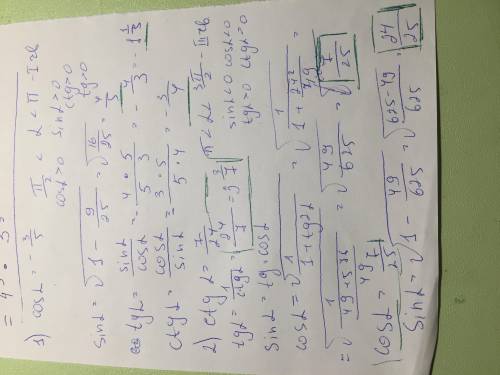 = 45° · 3°
1) cos α = - 3/5    π/2 < α < π - II чв
cos α > 0    sin α > 0
ctg > 0
tg > 0
sin α = √(1 - 9/25) = √(16/25) = 4/5
tg α = sin α / cos α = - (4 · 5)/(5 · 3) = - 4/3 = - 1 1/3
ctg α = cos α / sin α = (3 · 5)/(5 · 4) = - 3/4
2) ctg α = 7/24    π < α < 3π/2 - III чв
tg α = 1/ctg α = 24/7 = 3 3/7    sin α < 0  cos α < 0
tg α > 0  ctg α > 0
sin α = tg · cos α
cos α = √(1/(1 + tg 2 α)) = √(1/(1 + 24²/49)) =
= √(1/((49 + 576)/49)) = √(49/625) = 7/25
cos α = 7/25
sin α = √(1 - 49/625) = √((625 - 49)/625) = 24/25